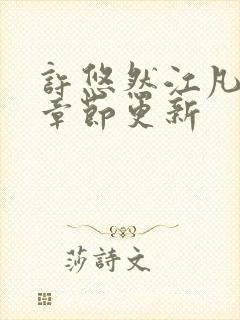 許悠然江凡
章節更新
莎詩文